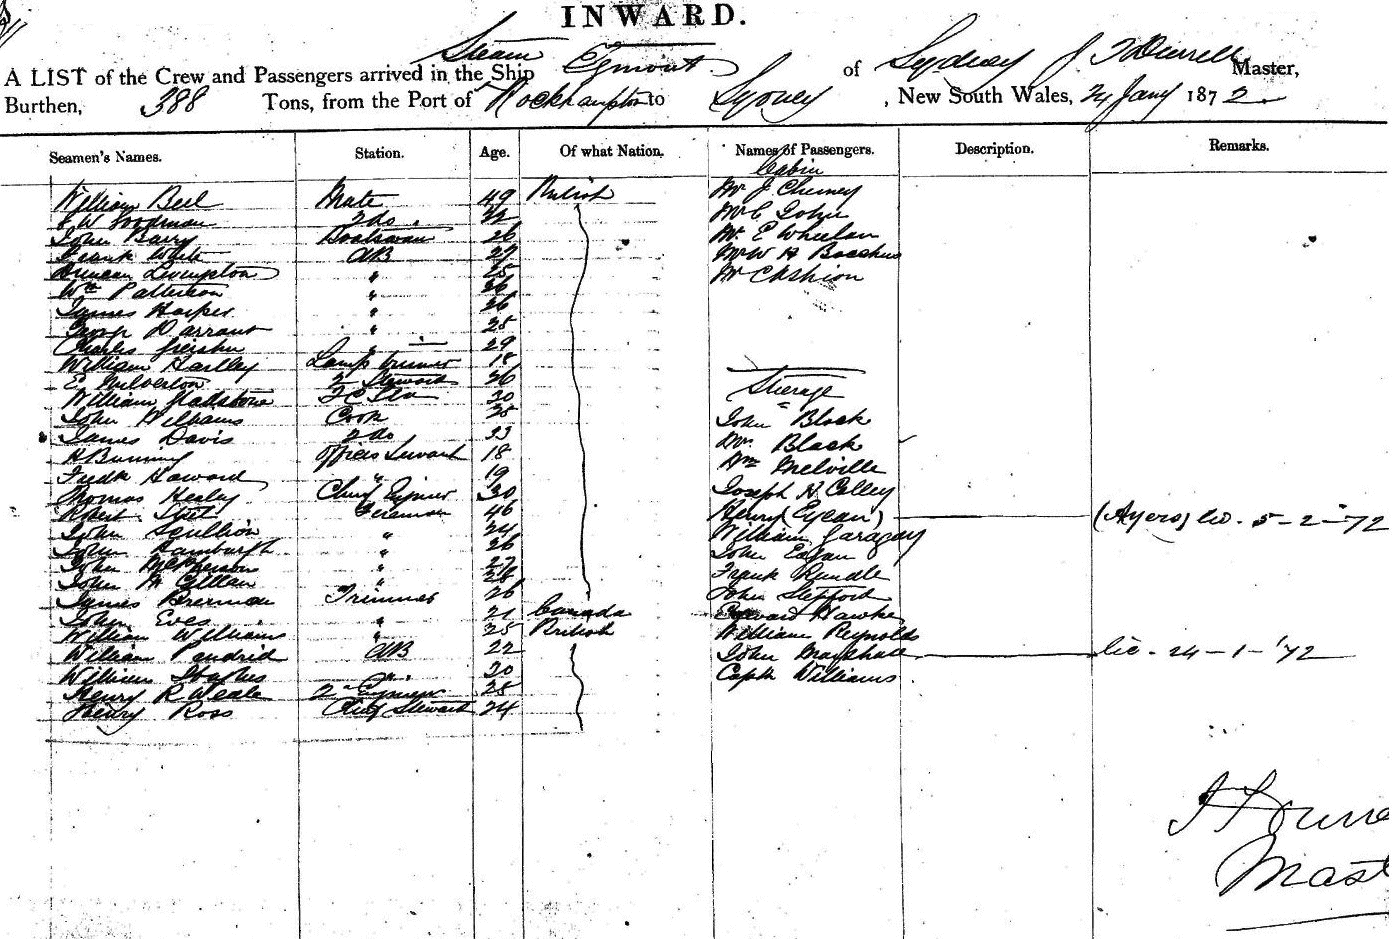 INWARD.
A LIST of the Crew and Passengers arrived in the Steam Ship Egmont of Sydney J. Master,
Burthen, 388 Tons, from the Port of Rockhampton to Sydney, New South Wales, 24 Jany 1872
Seamen's Names. Station. Age. Of what Nation. Names of Passengers. Description. Remarks.
Cabin
William Bell Mate 49 British Mr J. Cheney
W Woodman 2 do. 32 Mr C John
John Barry Boatswain 26 Mr E Wheelan
Frank White AB 27 Mr W H Bacchus
Duncan Levingston " 25 Mr Cashion
Wm Patterson " 26
James Harper " 26
George Darrant " 28
Charles " 29
William Hartley Lamp trimmer 18
E Wilverton 2 Steward 26 Steerage
William Gladstone 30
John Williams Cook 28 John Block
James Davis 2 do 33 Wm Black
H Bunning Officers Servant 18 Wm Melville
Fredk Howard " 19
Thomas Healey Chief Engineer 30 Joseph H Colley
Robert Fireman 46 Henry (Eycan) (Ayers) lic. 5-2-'72
John Scullion " 24 William Garagay
John Hamburgh " 26 John Eagan
John McPherson " 27 Frank Rundle
John McLellan " 28
James Brennan Trimmer 26 John Stafford
John Eves " 21 Canada Edward Hawke
William Williams " 25 British William Reynolds
William Pendrid AB 22 John Marshall lic. 24-1-'72
William Hughes " 30 Capt Williams
Henry R Weale 2 Engineer 28
Henry Ross Chief Steward 24
Mast